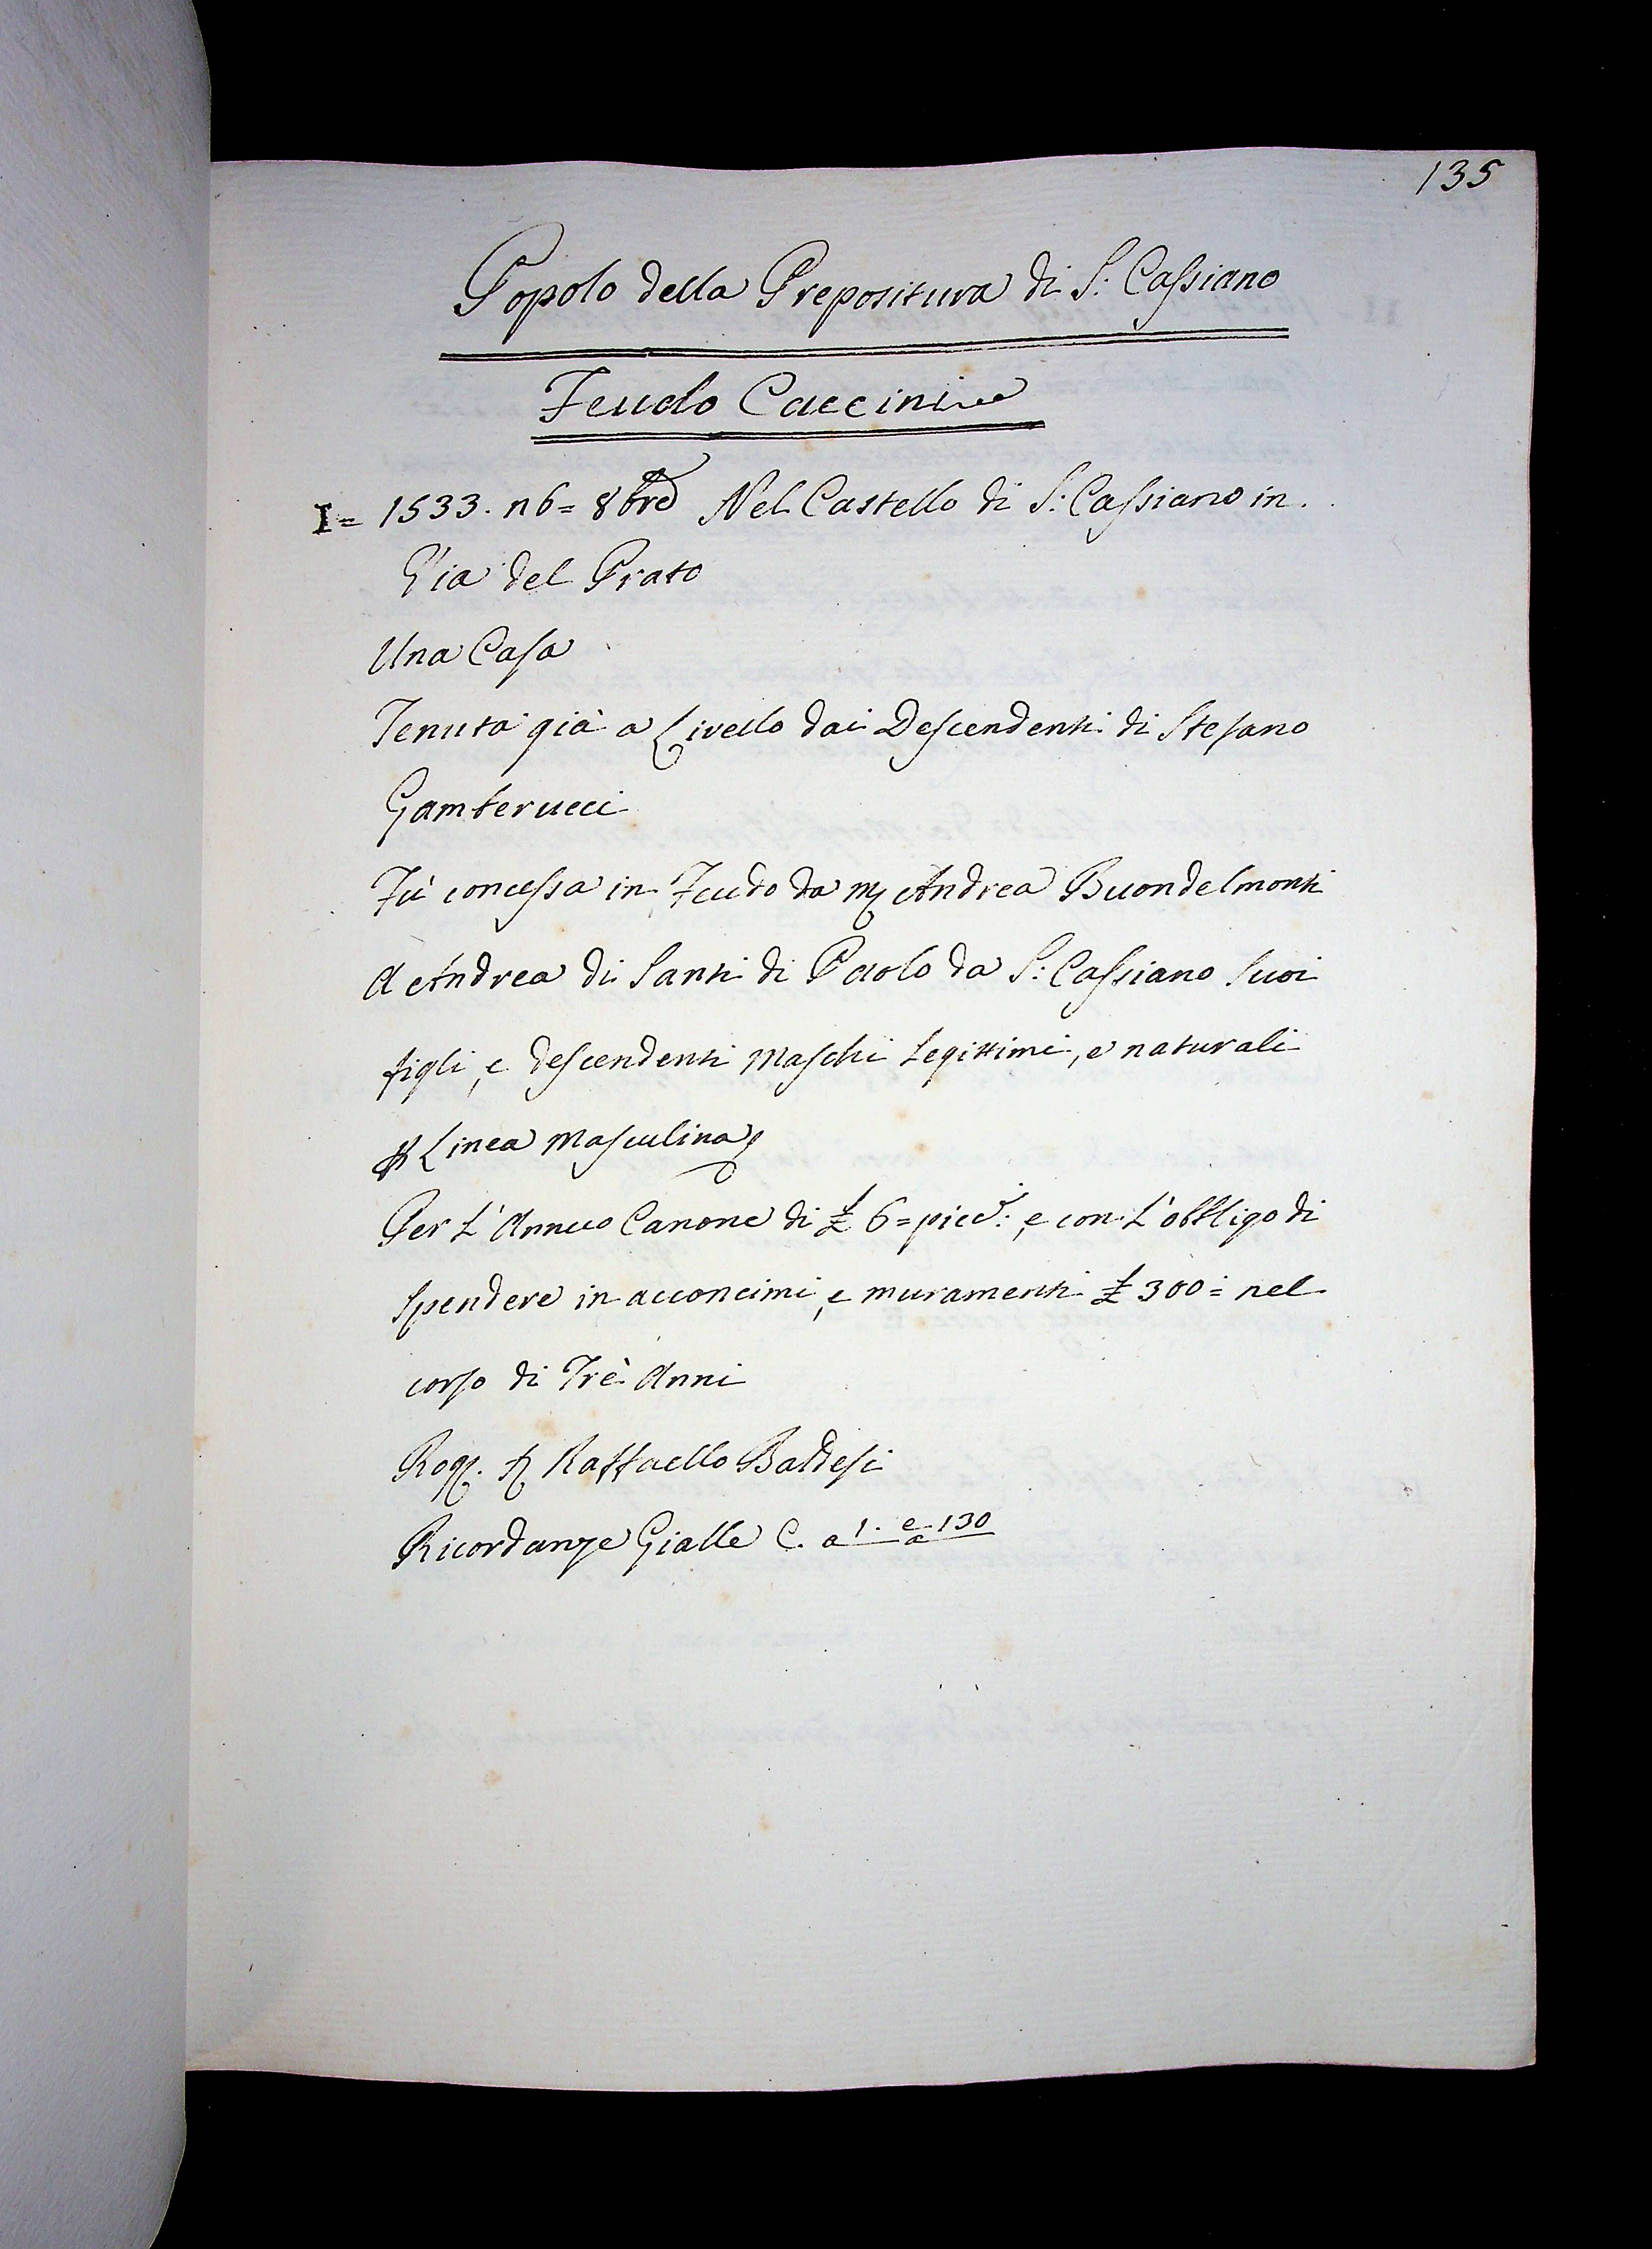 135
Popolo della Prepositura di S: Cassiano
Feudo Caccini
I= 1533. n 6= 8bre Nel Castello di S: Cassiano in
Via del Prato
Una Casa
Tenuta già a Livello dai Descendenti di Stefano
Gamberucci
Fù concessa in Feudo da Mr Andrea Buondelmonti
A Andrea di Santi di Paolo da S: Cassiano Suoi
figli, e descendenti Maschi Legittimi, e naturali
Linea Masculina
Per L'Annuo Canone di £ 6= picc: e con L'obbligo di
Spendere in acconcimi, e muramenti £ 300= nel
corso di Trè Anni
Rog. Raffaello Baldesi
Ricordanze Gialle C. a 1. e a 130